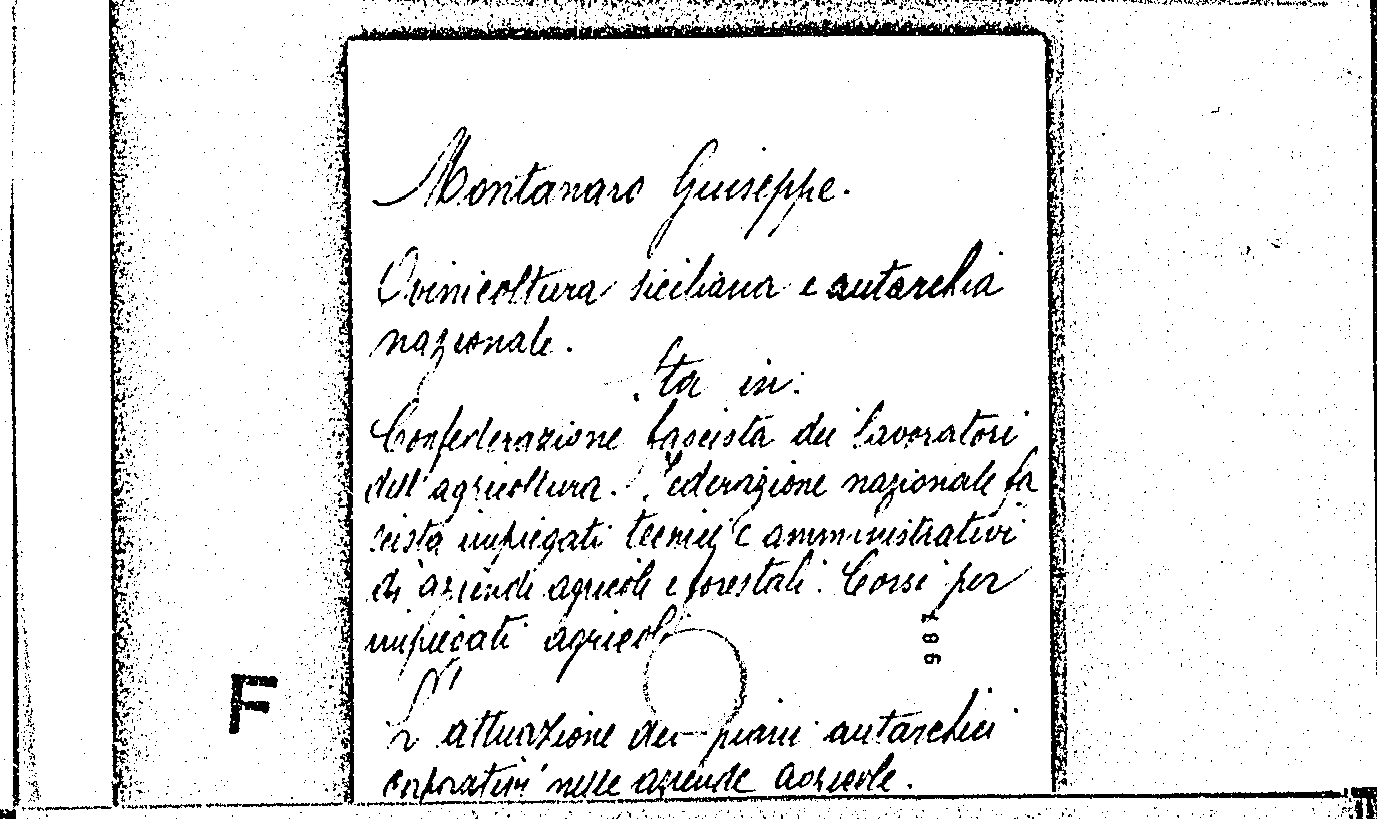 Montanaro Giuseppe.
Ovinicoltura siciliana e autarchia
nazionale.
Sta in:
Confederazione fascista dei lavoratori
dell'agricoltura. Federazione nazionale fa
scista impiegati tecnici e amministrativi
di aziende agricole e forestali. Corsi per
impiegati agricoli
L'attuazione dei piani autarchici
corporativi nelle aziende agricole.
F